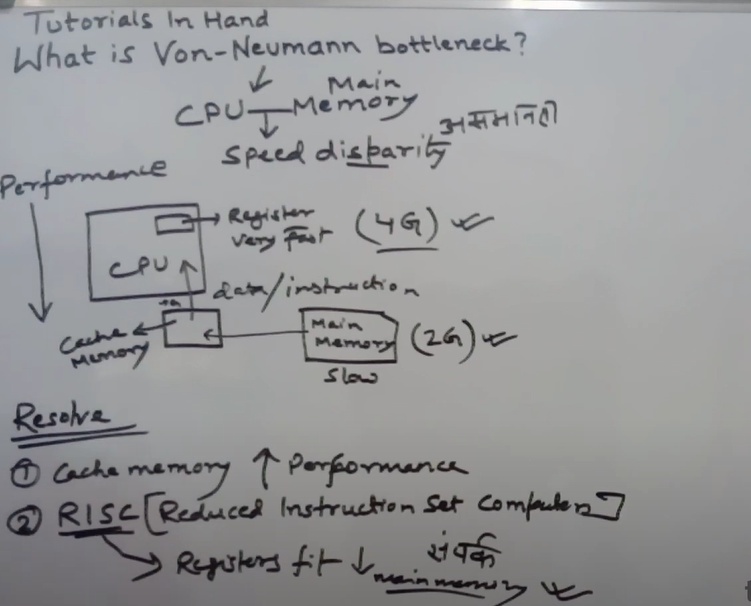 Tutorials In Hand
What is Von-Neumann bottleneck?
Main
CPU Memory
Speed disparity
Performance
Register
very Fast (4G)
CPU
data/instruction
Cache
Memory
Main
Memory (2G)
Slow
Resolve
① Cache memory ↑ Performance
② RISC [Reduced Instruction Set Computers]
संपर्क
Registers fit ↓ main memory